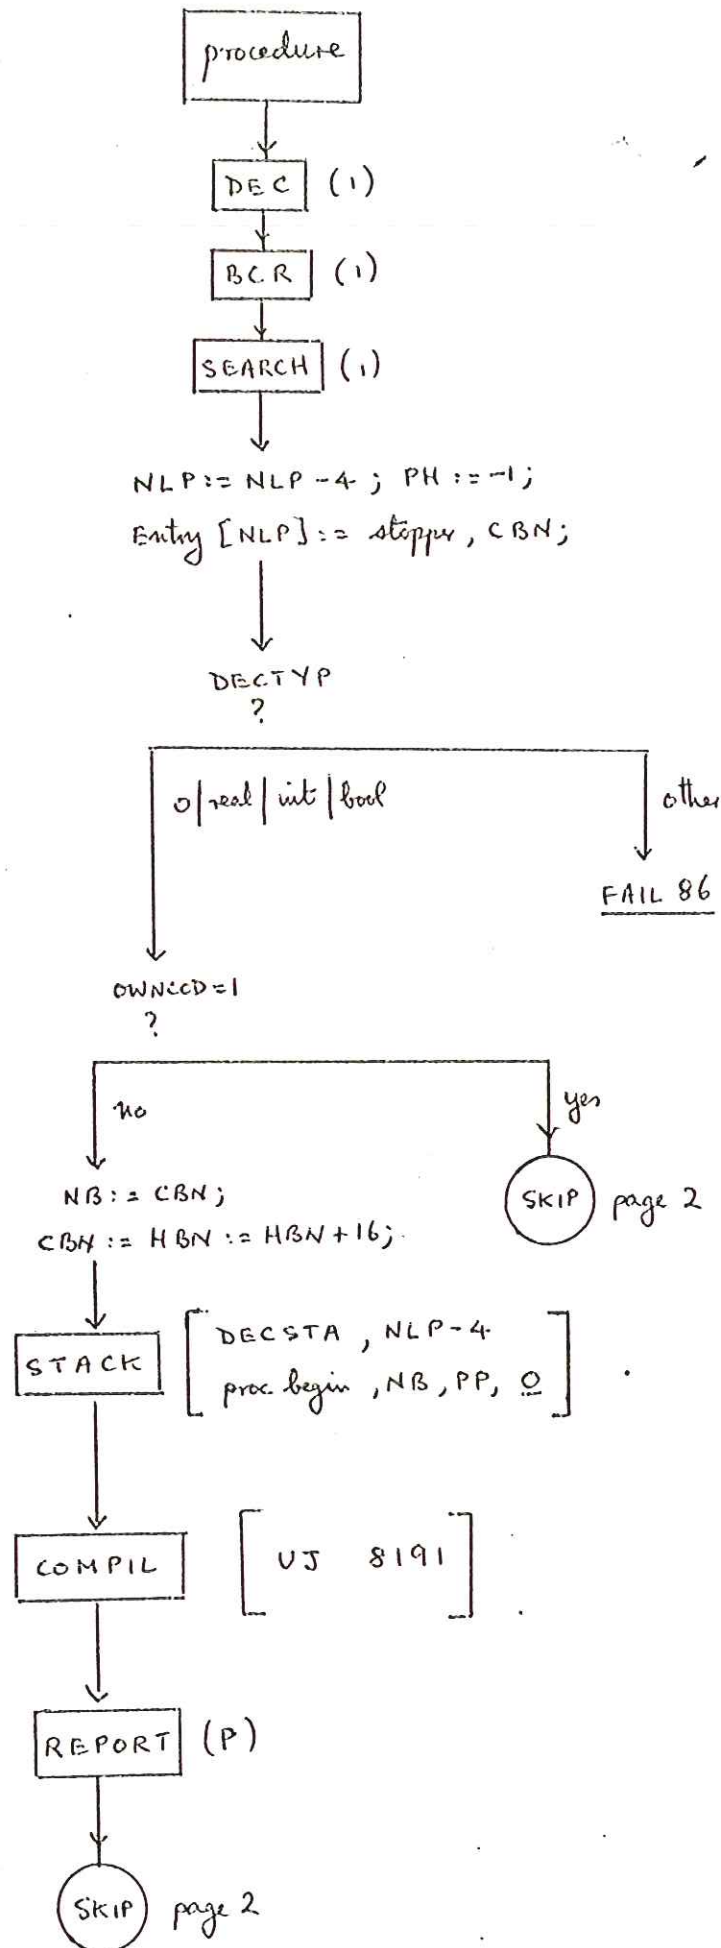 procedure
DEC (1)
BCR (1)
SEARCH (1)
NLP := NLP - 4 ; PH := -1 ;
Entry [NLP] := stopper , CBN ;
DECTYP
?
0 | real | int | bool
other
FAIL 86
OWNCCD = 1
?
no
yes
NB := CBN ;
CBN := HBN := HBN + 16 ;
SKIP page 2
STACK [ DECSTA , NLP - 4
proc begin , NB , PP , 0 ]
COMPIL [ UJ 8191 ]
REPORT (P)
SKIP page 2